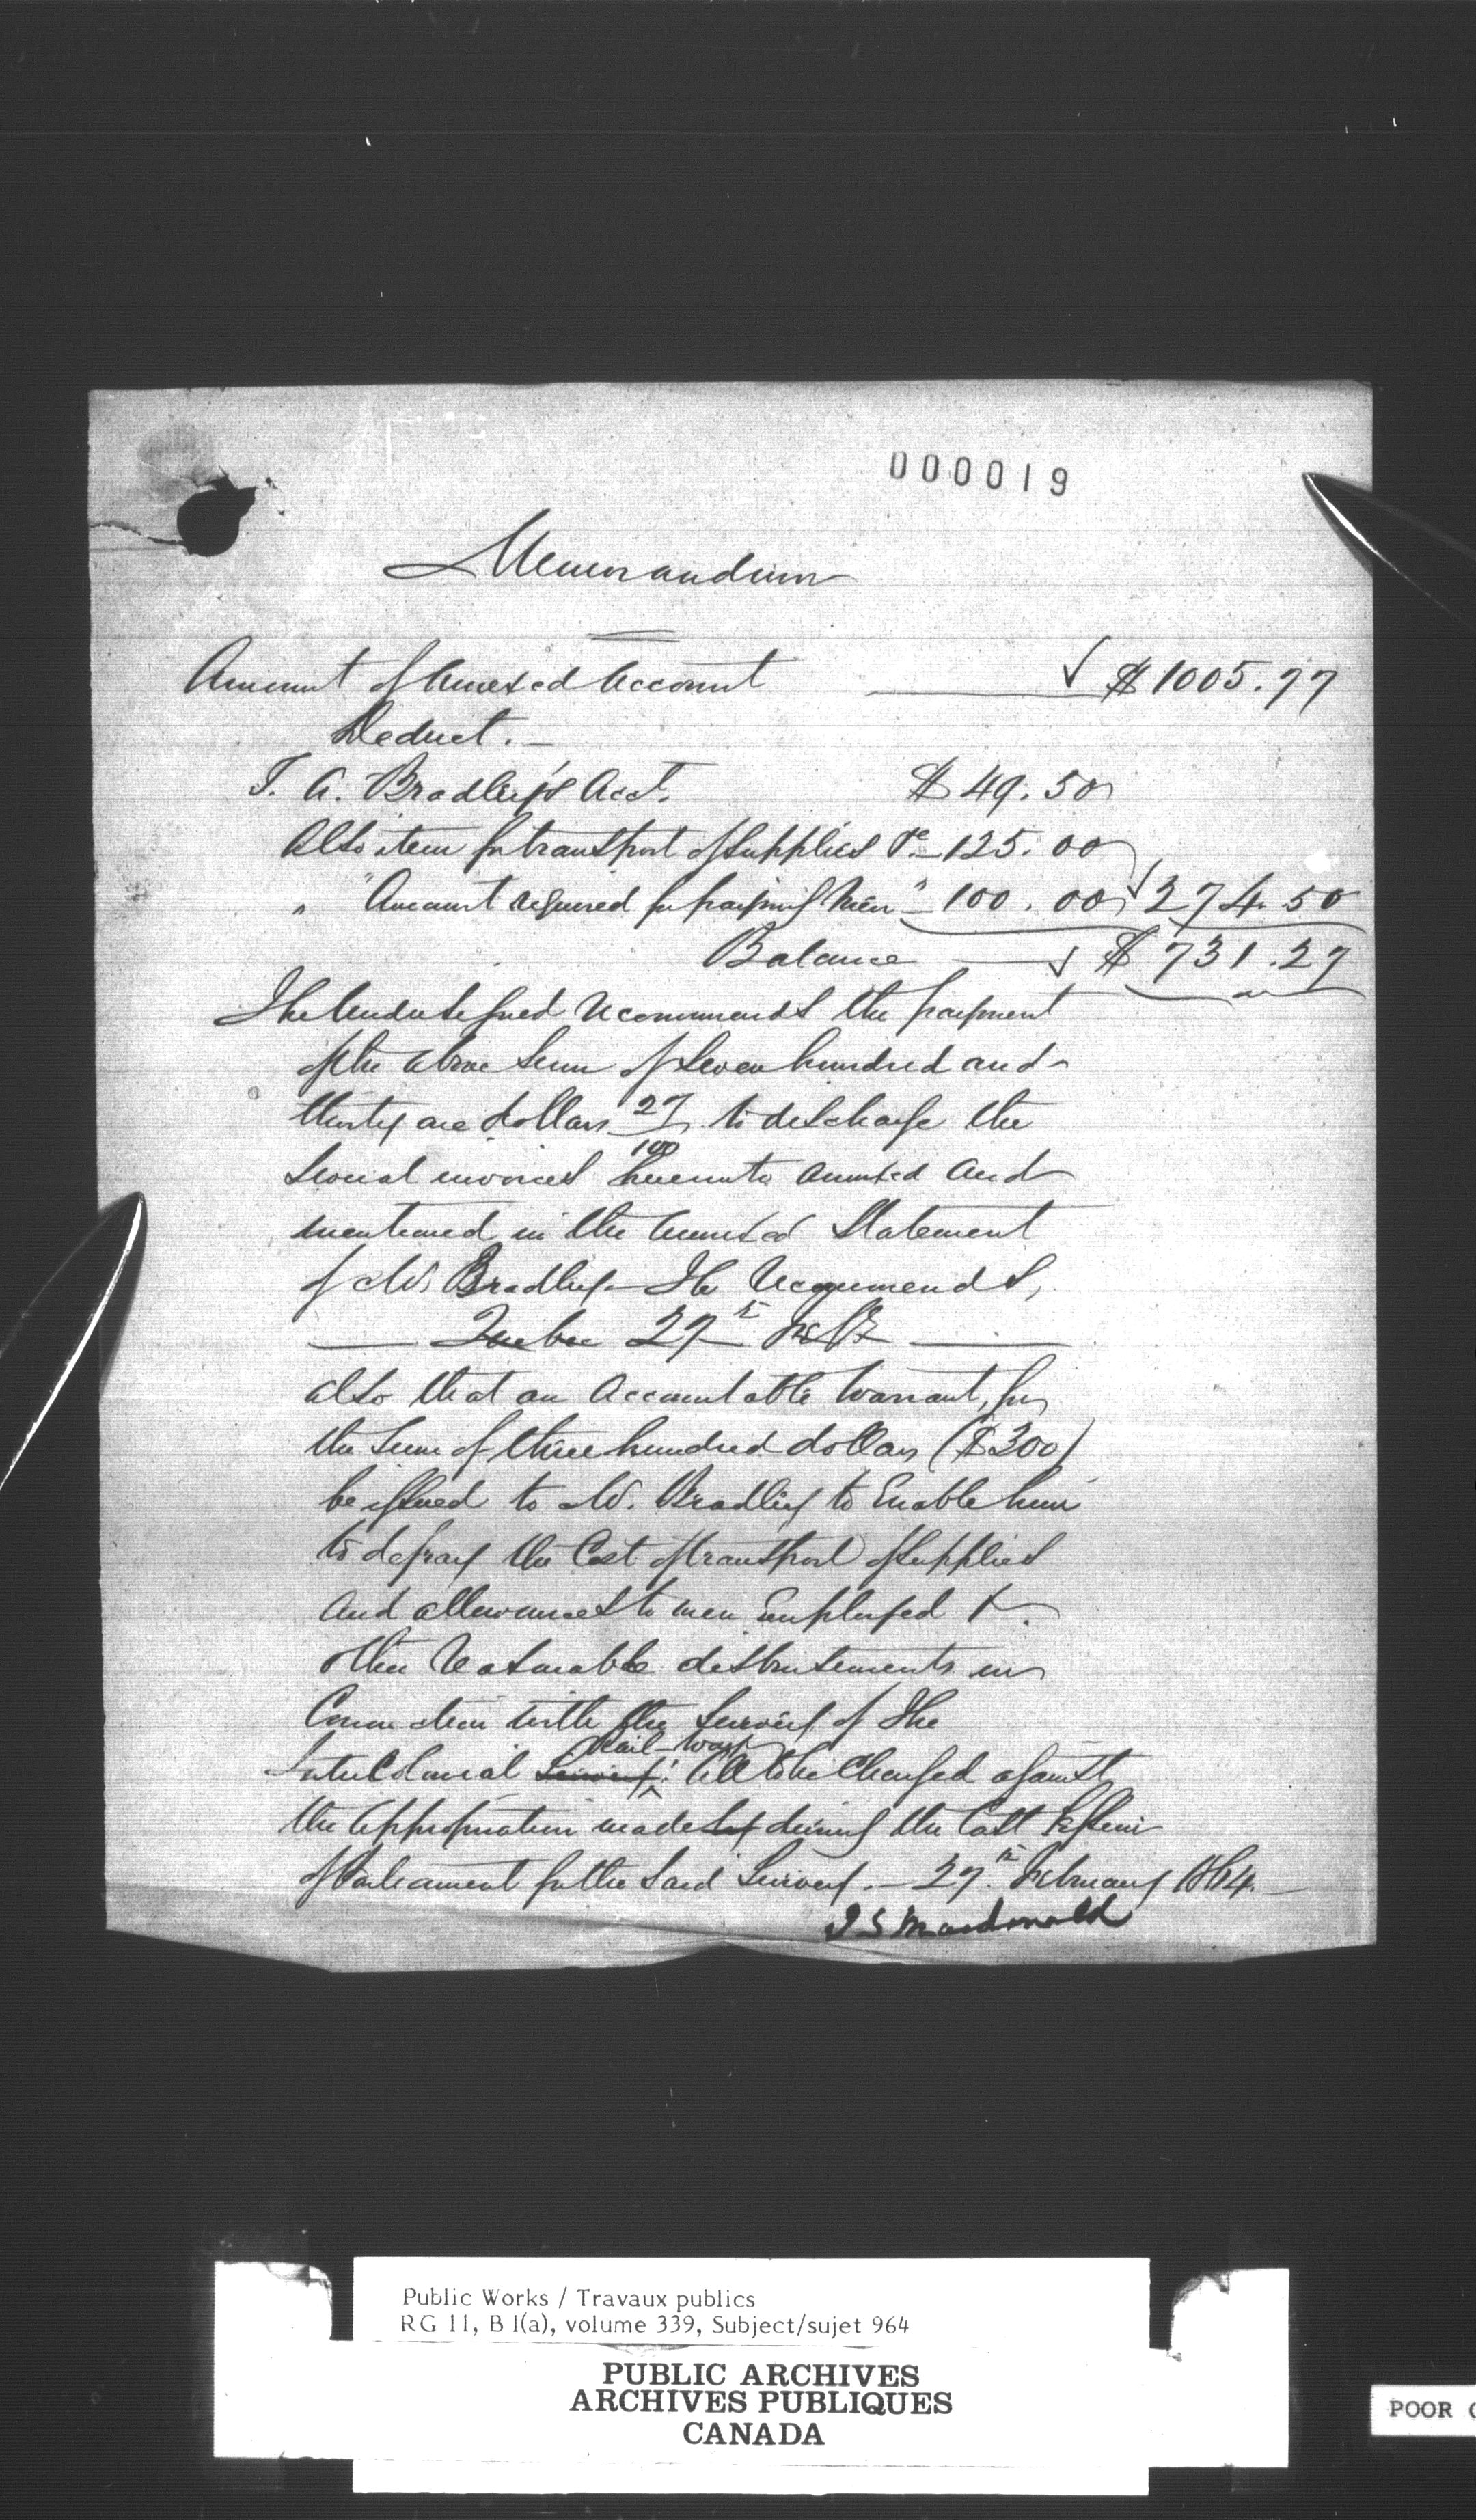 000019
Memorandum
Amount of Annexed Account √ $1005.77
Deduct. —
T. A. Bradley's Acct. $49.50
Also item for transport of supplies &c — 125.00
" "Amount required for paying Men" — 100.00 √ 274.50
Balance — √ $731.27
The Undersigned recommends the payment
of the above sum of Seven hundred and
thirty one dollars 27/100 to discharge the
several invoices hereunto annexed and
mentioned in the annexed Statement
of Mr Bradley — He Recommends,
— Quebec 27th Feb —
also that an Accountable Warrant, for
the Sum of three hundred dollars ($300)
be issued to Mr. Bradley to Enable him
to defray the Cost of transport of supplies
and allowances to men Employed &
other reasonable disbursements in
Connection with the Survey of The
Rail-Way
InterColonial Survey. All to be Charged against
the Appropriation made by during the last Session
of Parliament for the said Survey. — 27th February 1864. —
J S Macdonald
Public Works / Travaux publics
RG 11, B 1(a), volume 339, Subject/sujet 964
PUBLIC ARCHIVES
ARCHIVES PUBLIQUES
CANADA
POOR